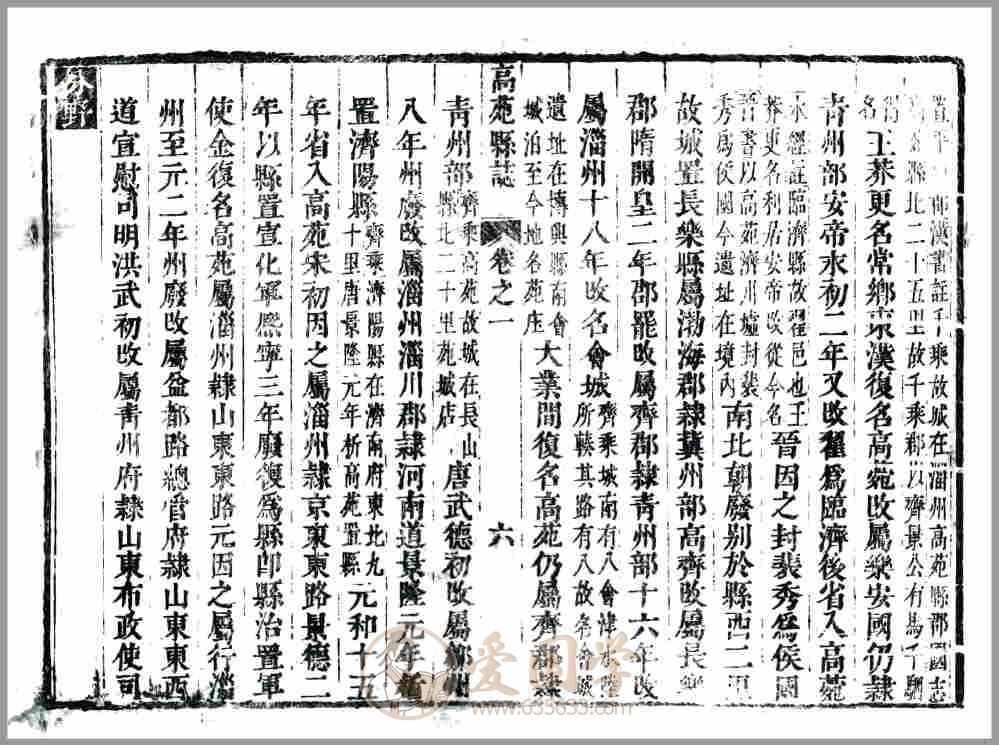 漢書註千乘故城在淄州高苑縣郡國志
縣北二十五里故千乘郡以齊景公有馬千駟
得名王莽更名常鄉東漢復名高苑改屬樂安國仍隸
青州部安帝永初二年又改翟爲臨濟後省入高苑
水經註臨濟縣故翟邑也王
莽更名利居安帝改從今名晉因之封裴秀爲侯國
晉書以高苑濟川墟封裴
秀爲侯國今遺址在境內南北朝廢别於縣西二里
故城置長樂縣屬渤海郡隸冀州部高齊改屬長樂
郡隋開皇二年郡罷改屬齊郡隸青州部十六年改
屬淄州十八年改名會城齊乘城南有八會津水陸
所輳其路有八故名會城
遺址在博興縣南會
城泊至今地名苑庄大業間復名高苑仍屬齊郡隸
高苑縣誌
卷之一
六
青州部齊乘高苑故城在長山
縣北二十里苑城店唐武德初改屬鄒州
八年州廢改屬淄州淄川郡隸河南道景隆元年析
置濟陽縣齊乘濟陽縣在濟南府東北九
十里唐景隆元年析高苑置縣元和十五
年省入高苑宋初因之屬淄州隸京東東路景德二
年以縣置宣化軍熙寧三年廢復爲縣卽縣治置軍
使金復名高苑屬淄州隸山東東路元因之屬行淄
州至元二年州廢改屬益都路總管府隸山東東西
道宣慰司明洪武初改屬青州府隸山東布政使司
分野
爱同学
www.635633.com